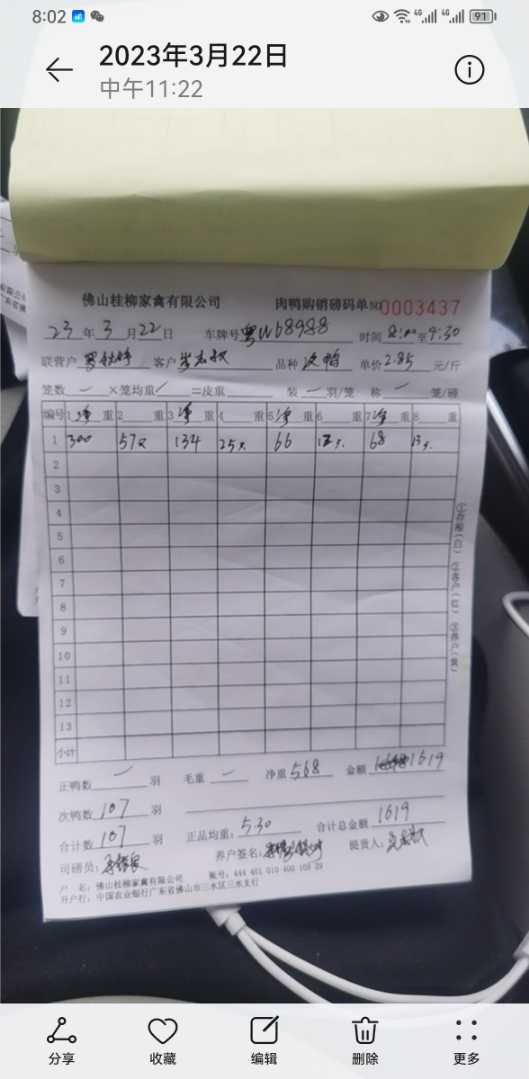 8:02 4G 4G 91
2023年3月22日
中午11:22
佛山桂柳家禽有限公司 肉鸭购销磅码单 NO 0003437
23年3月22日 车牌号 粤W68988 时间 8:00至9:30
联营户 客户 品种 次鸭 单价 2.85 元/斤
笼数 一 ×笼均重 / =皮重 装 一 羽/笼 称 一 笼/磅
编号 1 净 重 2 重 3 净 重 4 重 5 净 重 6 重 7 净 重 8 重
1 300 57只 134 25只 66 12只 68 13只
2
3
4
5
6
7
8
9
10
11
12
13
小计
①存根(白) ②客户(红) ③养户(黄)
正鸭数 一 羽 毛重 一 净重 568 金额 1619
次鸭数 107 羽
合计数 107 羽 正品均重: 530 合计总金额 1619
司磅员: 养户签名: 提货人:
户 名: 佛山桂柳家禽有限公司 账号: 444 401 010 400
开户行: 中国农业银行广东省佛山市三水区三水支行
分享 收藏 编辑 删除 更多